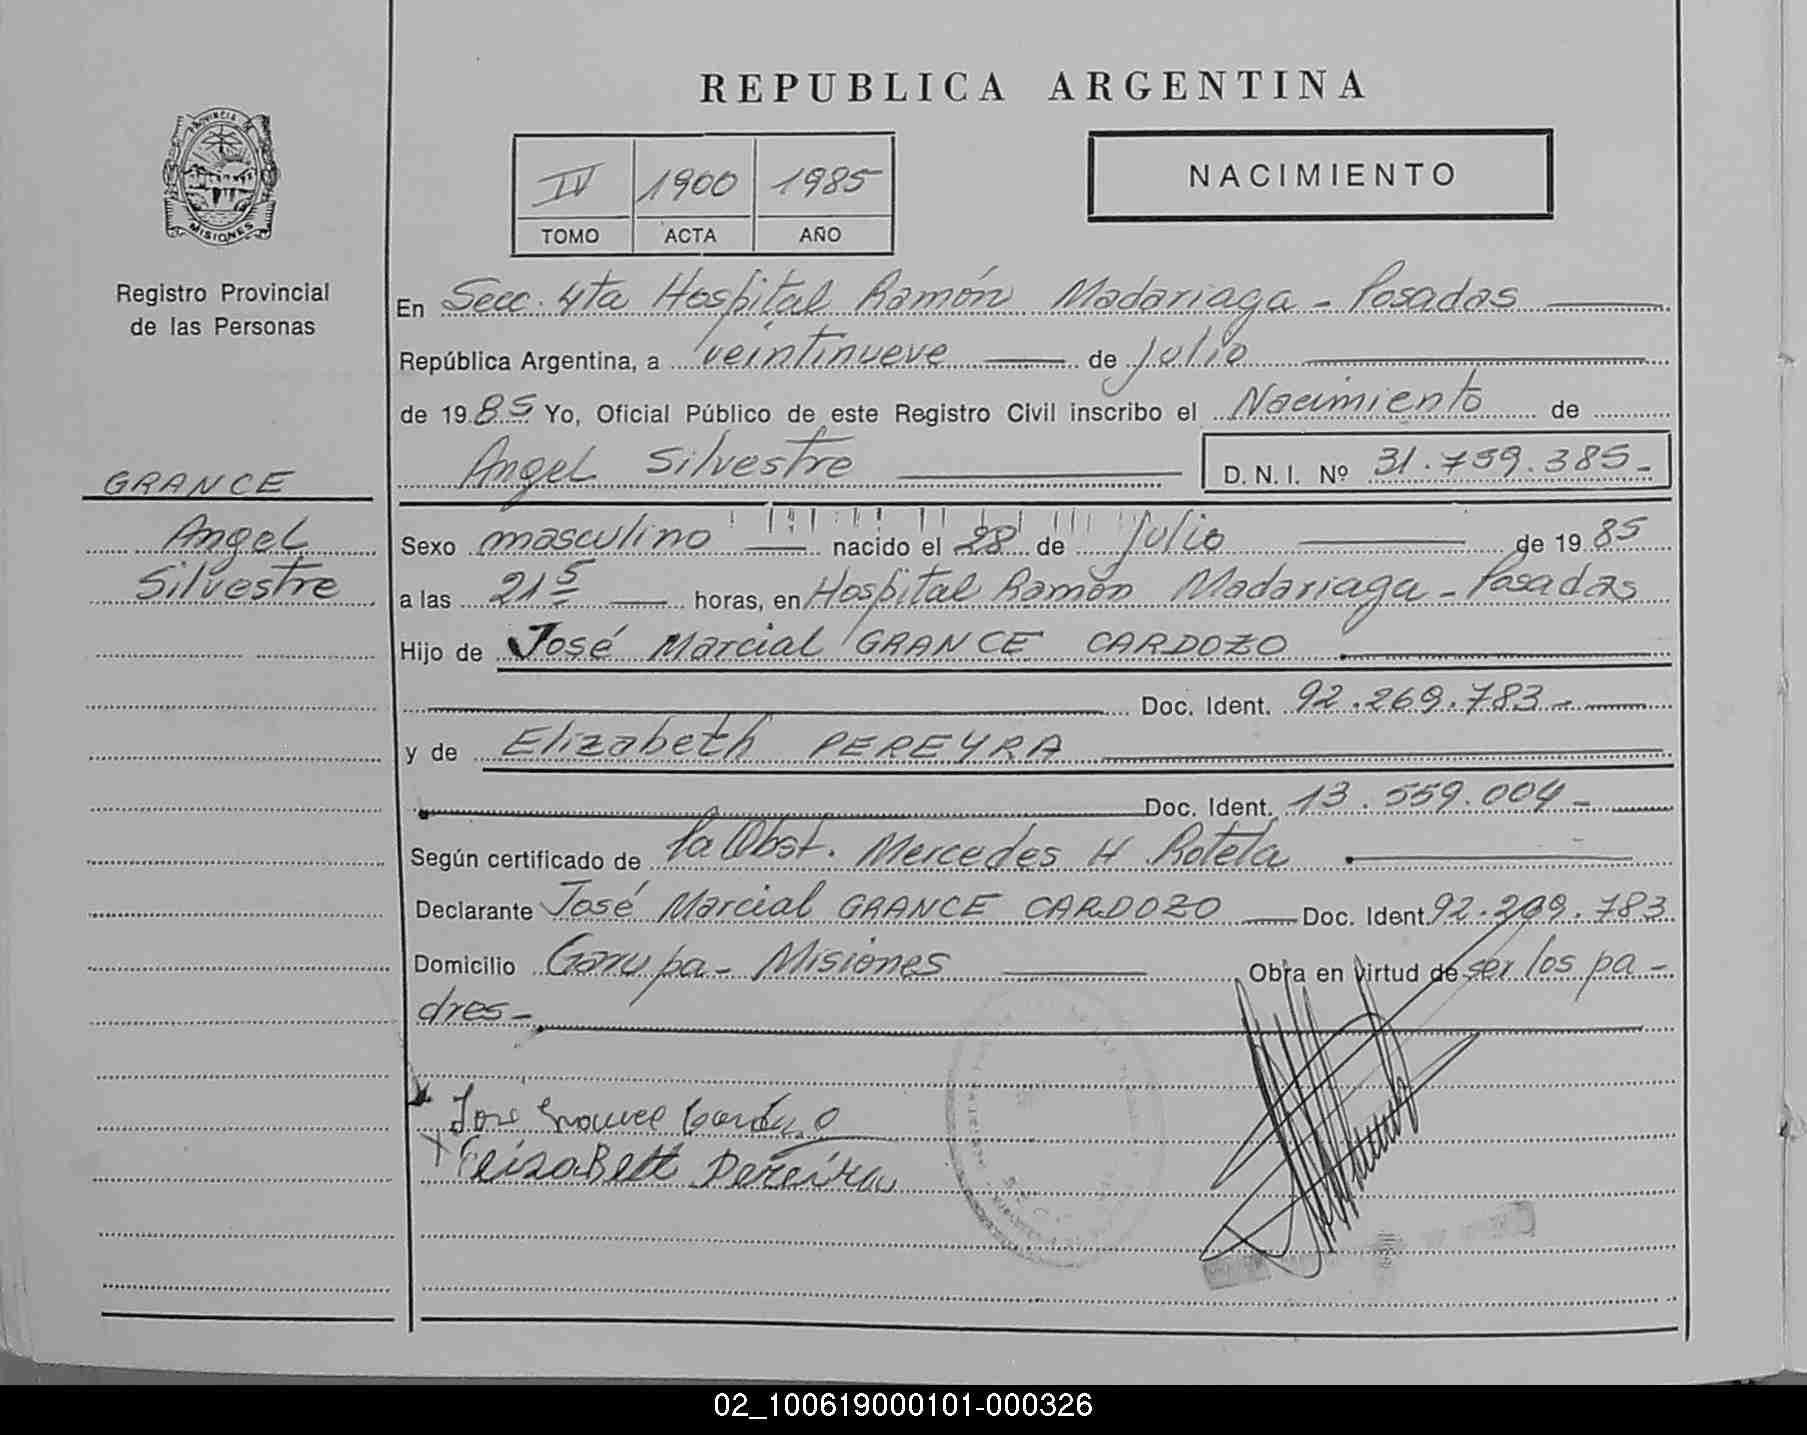 REPUBLICA ARGENTINA
PROVINCIA DE
MISIONES
IV 1900 1985
TOMO ACTA AÑO
NACIMIENTO
Registro Provincial
de las Personas
En Secc. 4ta Hospital Ramón Madariaga - Posadas
República Argentina, a veintinueve de Julio
de 1985 Yo, Oficial Público de este Registro Civil inscribo el Nacimiento de
Angel Silvestre D. N. I. Nº 31.759.385.-
GRANCE
Angel
Silvestre
Sexo masculino nacido el 28 de Julio de 1985
a las 21 5 horas, en Hospital Ramón Madariaga - Posadas
Hijo de José Marcial GRANCE CARDOZO
Doc. Ident. 92.269.783.-
y de Elizabeth PEREYRA
Doc. Ident. 13.559.004-
Según certificado de la Obst. Mercedes H Rotela
Declarante José Marcial GRANCE CARDOZO Doc. Ident. 92.269.783
Domicilio Garupa - Misiones Obra en virtud de ser los pa-
dres-
Elisabett Pereira
02_100619000101-000326